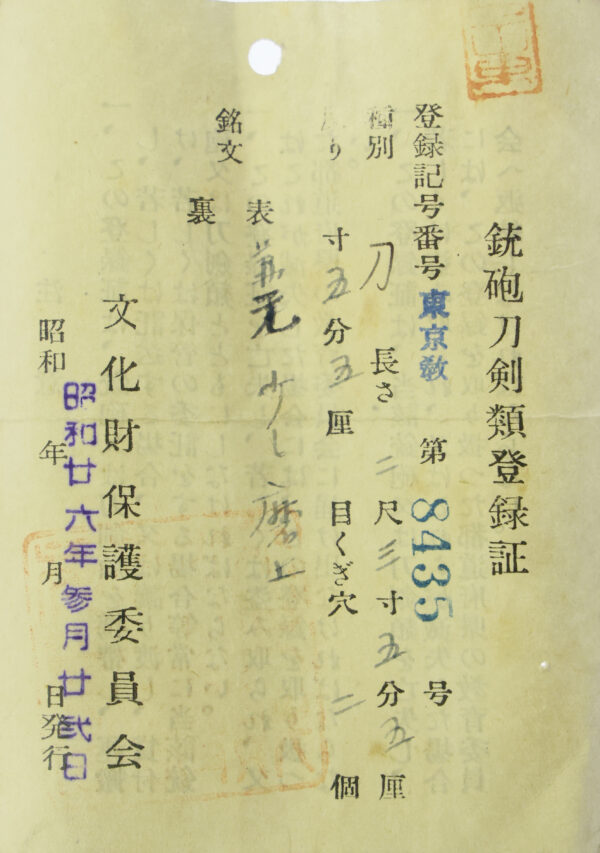 銃砲刀剣類登録証
登録記号番号 東京教 第 8435 号
種別 刀 長さ 二尺三寸五分五厘
反り 寸五分五厘 目くぎ穴 二個
銘文 表 光 少し磨上
裏
文化財保護委員会
昭和 年 月 日発行
昭和廿六年参月廿弐日